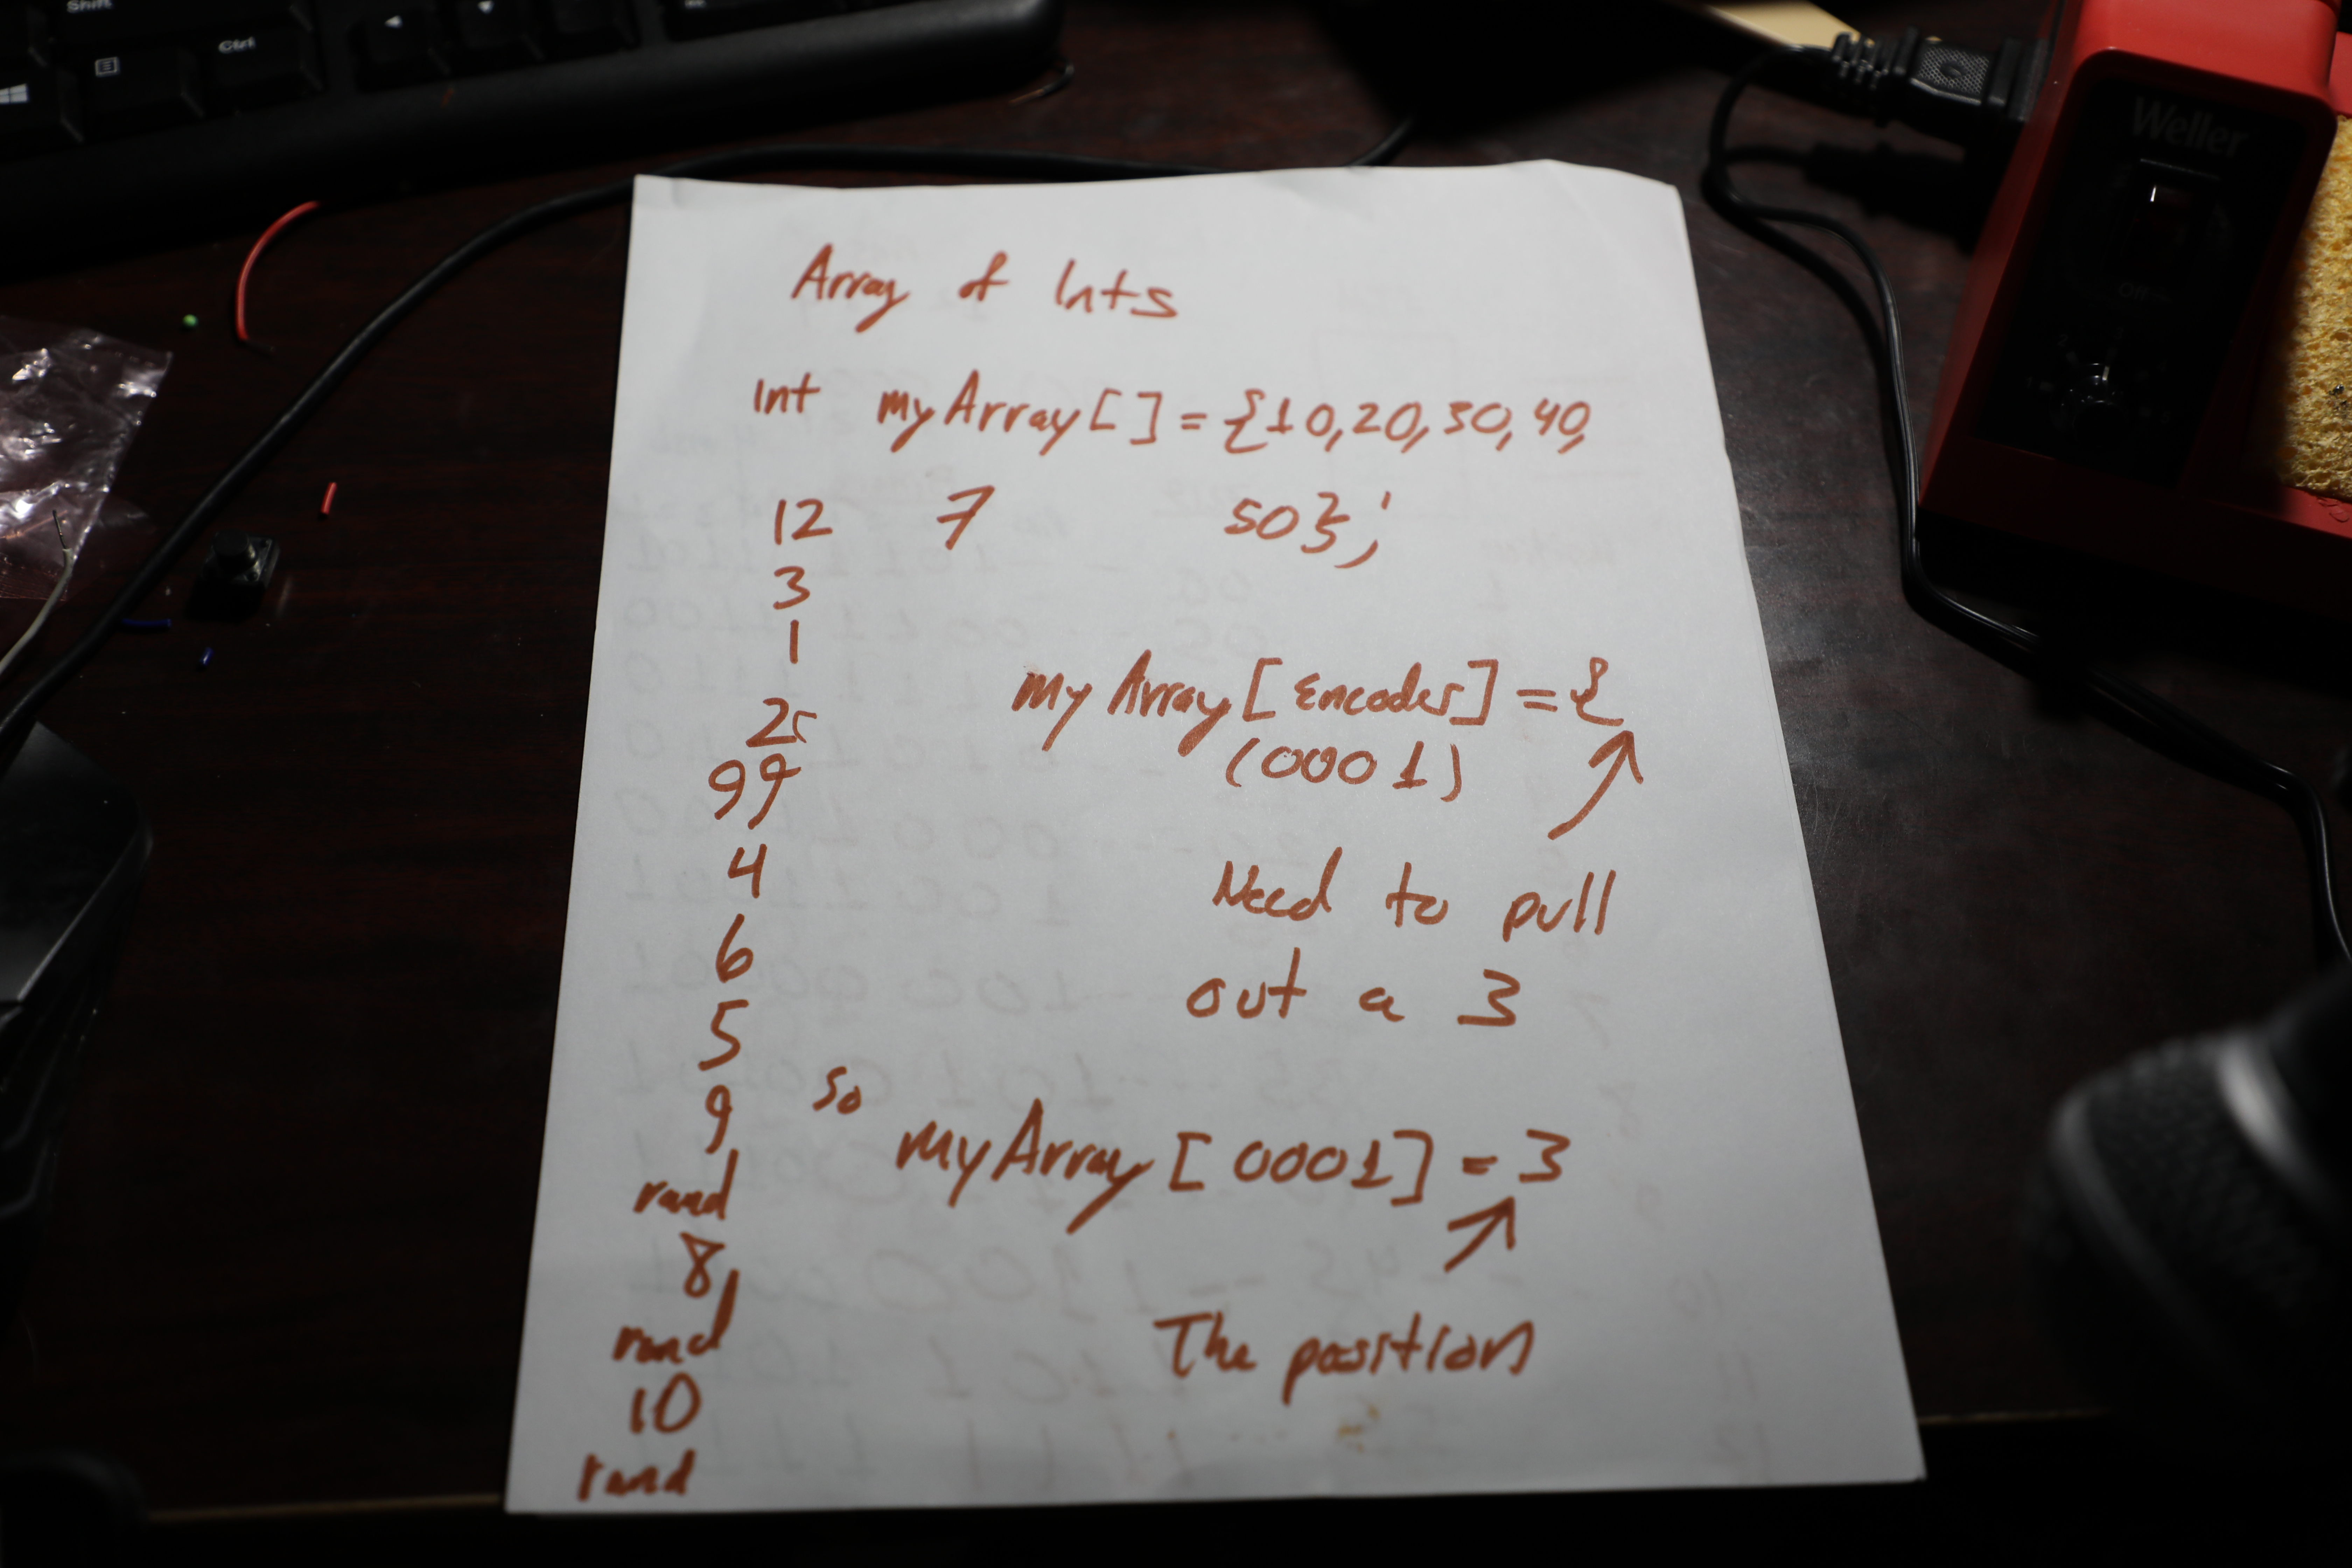 Shift
Ctrl
Weller
Off
Array of Ints
int myArray[] = {10,20,30,40,
50};
12 7
3
1
myArray[Encoder] = {
(0001)
99
4
Need to pull
6
out a 3
5
so
9
myArray[0001] = 3
rand
8
The position
rand
10
rand